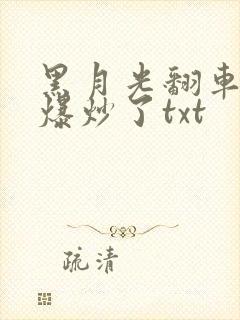 黑月光翻車
爆炒了txt
疏清